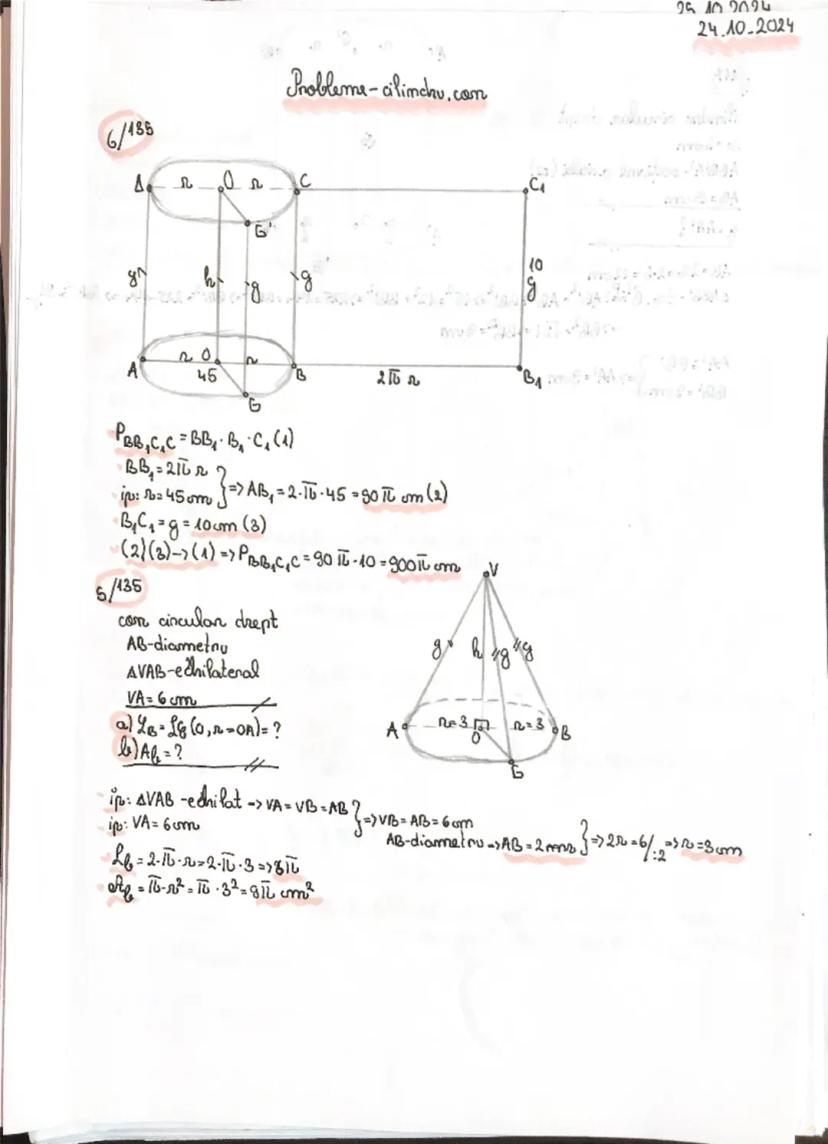 25.10.2024
24.10.2024
Probleme-cilindru, con
6/135
D r O r C C1
G'
g h g g 10
g
A r O r B B1
45 2π r
G
P BB1C1C = BB1 · B1 · C1 (1)
BB1 = 2π r
ip: r = 45 cm } => AB1 = 2·π·45 = 90π cm (2)
B1C1 = g = 10 cm (3)
(2)(3) -> (1) => P BB1C1C = 90π·10 = 900π cm
5/135
V
con circular drept
AB-diametru
ΔVAB-echilateral
VA = 6 cm
a) LB = Lb (O, r = OA) = ?
b) Ab = ?
g h g g
A r=3 O r=3 B
G
ip: ΔVAB-echilat -> VA = VB = AB
ip: VA = 6 cm } => VB = AB = 6 cm
AB-diametru => AB = 2 } => 2r = 6/:2 => r = 3 cm
Lb = 2·π·r = 2·π·3 => π
Ab = π·r² = π·3² = 9π cm²